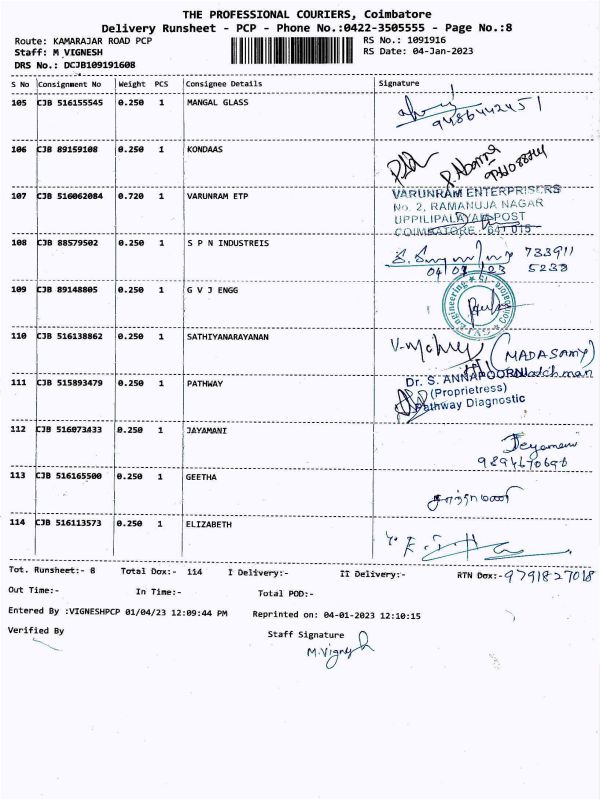 THE PROFESSIONAL COURIERS, Coimbatore
Delivery Runsheet - PCP - Phone No.:0422-3505555 - Page No.:8
Route: KAMARAJAR ROAD PCP
RS No.: 1091916
Staff: M VIGNESH
RS Date: 04-Jan-2023
DRS No.: DCJB109191608
S No Consignment No Weight PCS Consignee Details Signature
105 CJB 516155545 0.250 1 MANGAL GLASS
9486442451
106 CJB 89159108 0.250 1 KONDAAS
107 CJB 516062084 0.720 1 VARUNRAM ETP
VARUNRAM ENTERPRISERS
No. 2, RAMANUJA NAGAR
UPPILIPALAYAM POST
COIMBATORE - 641 015
108 CJB 88579502 0.250 1 S P N INDUSTREIS
733911
5233
109 CJB 89148805 0.250 1 G V J ENGG
110 CJB 516138862 0.250 1 SATHIYANARAYANAN
(MADASAMY)
Watchman
111 CJB 515893479 0.250 1 PATHWAY
Dr. S. ANNAPOORNI
(Proprietress)
Pathway Diagnostic
112 CJB 516073433 0.250 1 JAYAMANI
Jeyamani
113 CJB 516165500 0.250 1 GEETHA
114 CJB 516113573 0.250 1 ELIZABETH
Tot. Runsheet:- 8 Total Dox:- 114 I Delivery:- II Delivery:- RTN Dox:- 9791827018
Out Time:- In Time:- Total POD:-
Entered By :VIGNESHPCP 01/04/23 12:09:44 PM Reprinted on: 04-01-2023 12:10:15
Verified By Staff Signature
M.Vignesh